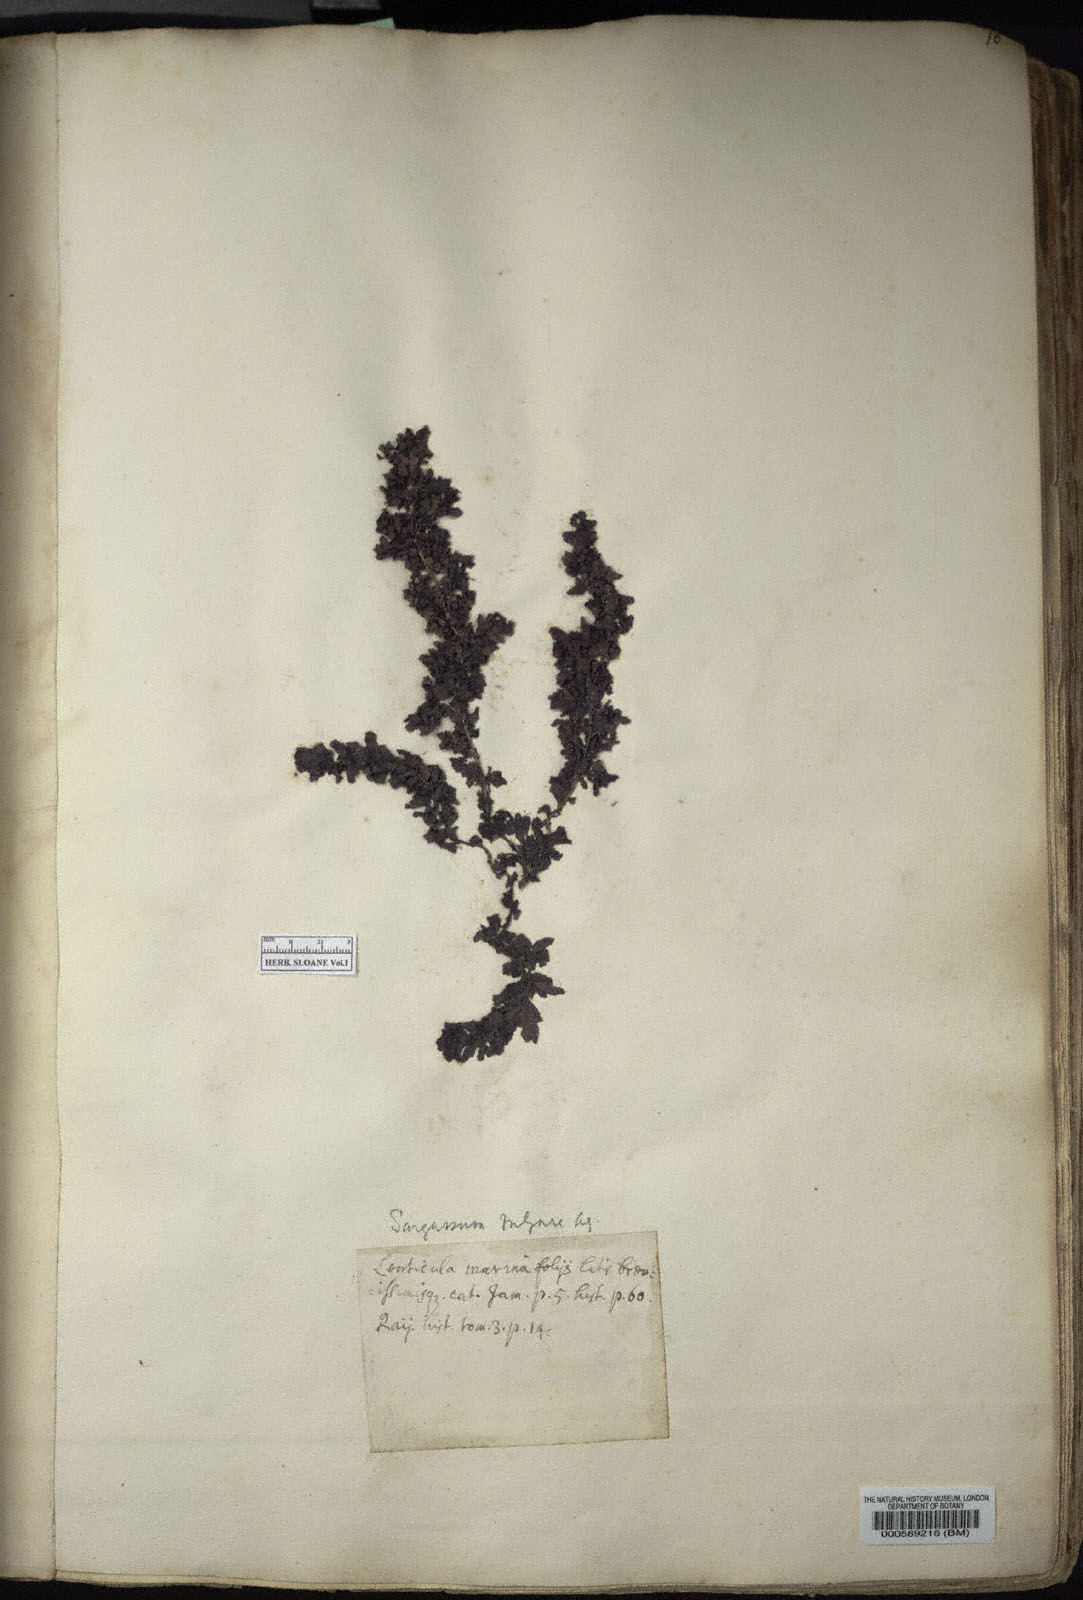 10
mm 1 2 3
HERB. SLOANE Vol.1
Sargassum vulgare Ag.
Lenticula marina folijs latis brev=
=issimisq3. cat. Jam. p. 5. hist. p. 60.
Raij. hist. tom. 3. p. 19.
THE NATURAL HISTORY MUSEUM, LONDON
DEPARTMENT OF BOTANY
000589216 (BM)